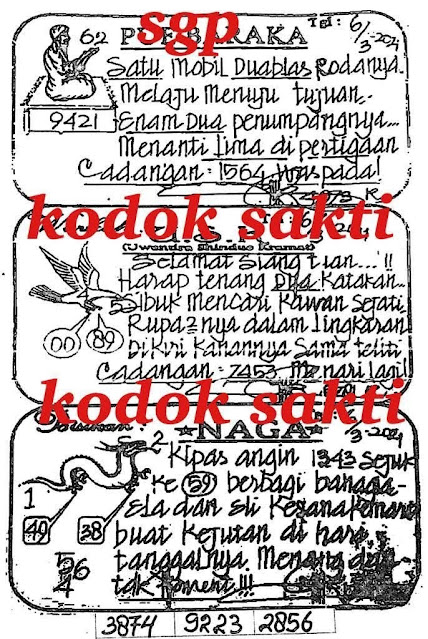 sgp
62
BARAKA
Tgl: 6/3-2024
Satu Mobil Duablas Rodanya.
Melaju Menuju tujuan..
9421
Enam Dua penumpangnya...
Menanti lima di pertigaan
Cadangan: 1564 Waspada!
kodok sakti
Selamat Siang tuan...!!
Harap tenang Dua Katakan...
Sibuk Mencari Kawan Sejati.
00 89
Rupa2nya dalam lingkaran
Dikiri Kanannya Sama teliti
Cadangan: 7453 Menari lagi!
kodok sakti
NAGA
3-2024
2
Kipas angin 1343 Sejuk
1
Ke 59 berbagi
40 38
Ela dan Eli Kesana
buat Kejutan di hari
tanggalnya. Menang
tak Koment!!!
3874 9223 2856